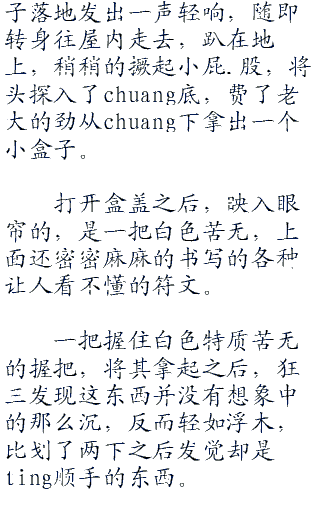 子落地发出一声轻响，随即
转身往屋内走去，趴在地
上，稍稍的撅起小屁.股，将
头探入了chuang底，费了老
大的劲从chuang下拿出一个
小盒子。
打开盒盖之后，映入眼
帘的，是一把白色苦无，上
面还密密麻麻的书写的各种
让人看不懂的符文。
一把握住白色特质苦无
的握把，将其拿起之后，狂
三发现这东西并没有想象中
的那么沉，反而轻如浮木，
比划了两下之后发觉却是
ting顺手的东西。